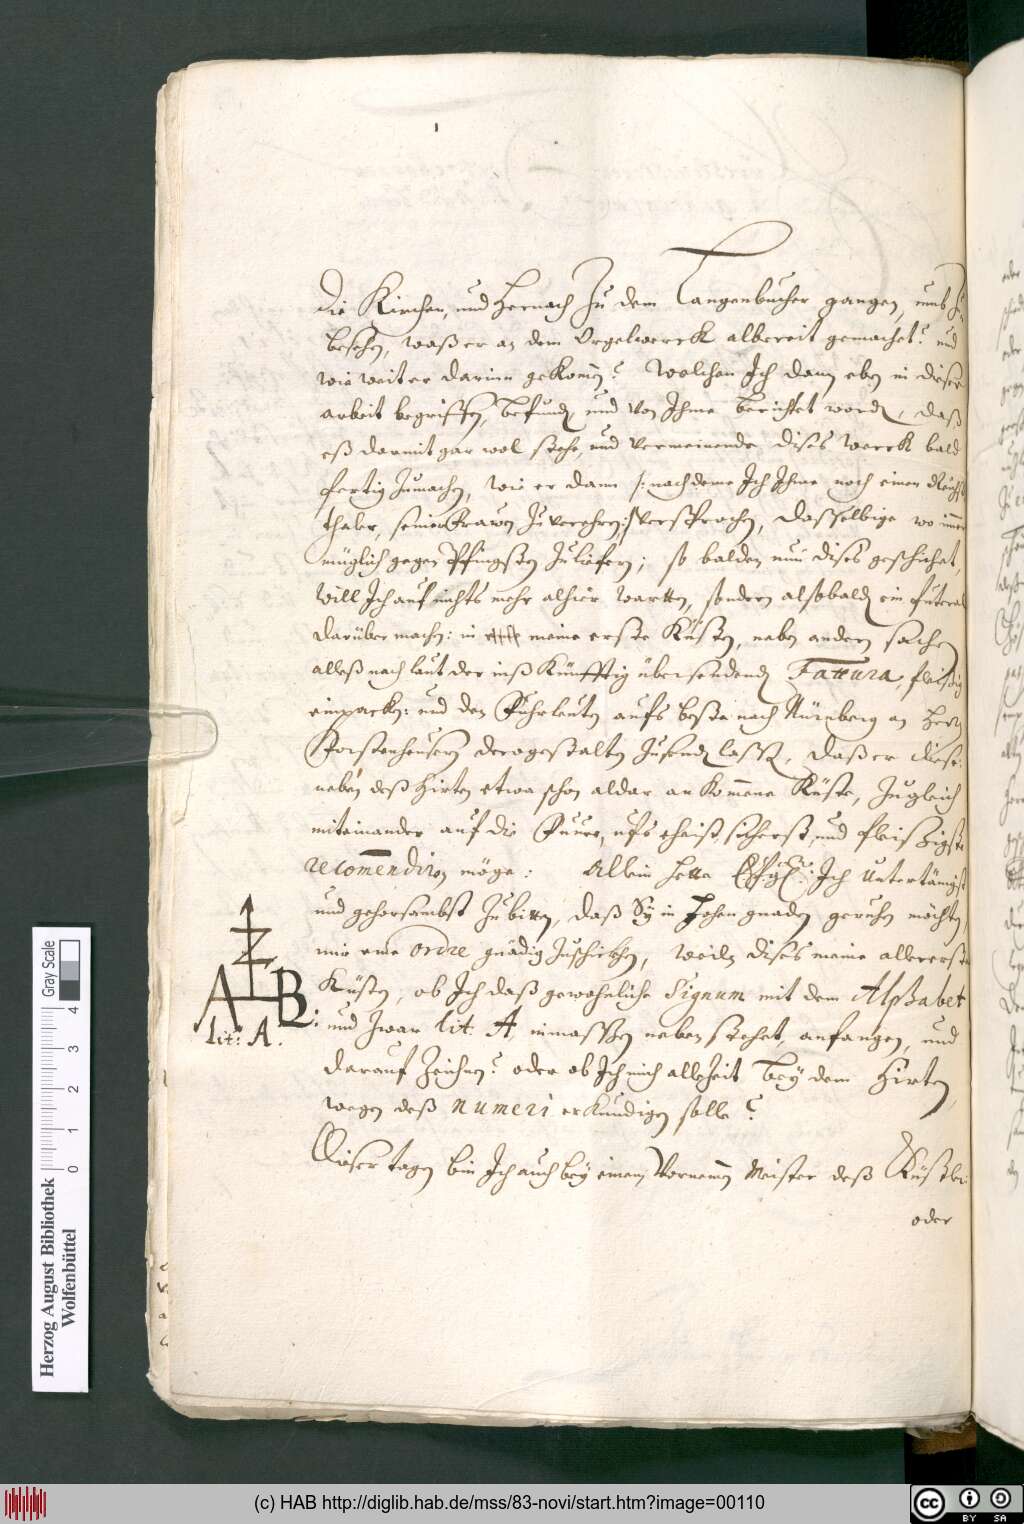 die Kirchen, und Hernach Zu dem Langenbucher gangen, umb Zu
besehen, waß er an dem Orgelwerck albereit gemachet? und
wie weiter darinn gekom̃en? Welchen Ich dann eben in diser
arbeit begriffen, befunden, und von Ihme berichtet worden, daß
eß darmit gar wol stehe, und vermeinende dises werck bald
fertig Zumachen, wie er dann /: nachdeme Ich Ihme noch einen Reichs
thaler, seiner Frawen Zuverehren :/ versprochen, dasselbige wo immer
müglich gegen Pfingsten Zulifern; so balden nun dises geschihet,
will Ich auf nichts mehr alhier wartten, sondern alsobalden ein Futeral
darüber machen: in meine erste Küsten, neben andern sachen
alleß nach laut der inß Künfftig übersendenden Fattura, fleißig
einpacken: und den Fuhrleuten aufs beste nach Nürnberg an Herrn
Forstenheusern derogestalten Zusenden lassen, daß er dise:
neben deß Hirten etwa schon aldar ankom̃ene Küste, Zugleich
miteinander auf die Fuere, ufs eheist, sicherst, und fleissigste
recom̃endiren möge: Allein hette Ich Untertänigst
und gehorsambst Zubitten, daß Sy in Hohen gnaden geruhen möchten,
mir eine ordre gnädig Zuschickhen, weiln dises meine allererste
Küsten, ob Ich daß gewohnliche Signum mit dem Alphabet
: und Zwar lit. A inmassen neben stehet, anfangen, und
darauf Zeichnen? oder ob Ich mich alleZeit bey dem Hirten,
wegen deß numeri erkundigen solle?
Z
A B
lit: A.
Diser tagen bin Ich auch bey einem Vornem̃en Meister deß Küstler
oder
Herzog August Bibliothek
Wolfenbüttel
0 1 2 3 4
Gray Scale
(c) HAB http://diglib.hab.de/mss/83-novi/start.htm?image=00110
cc BY SA